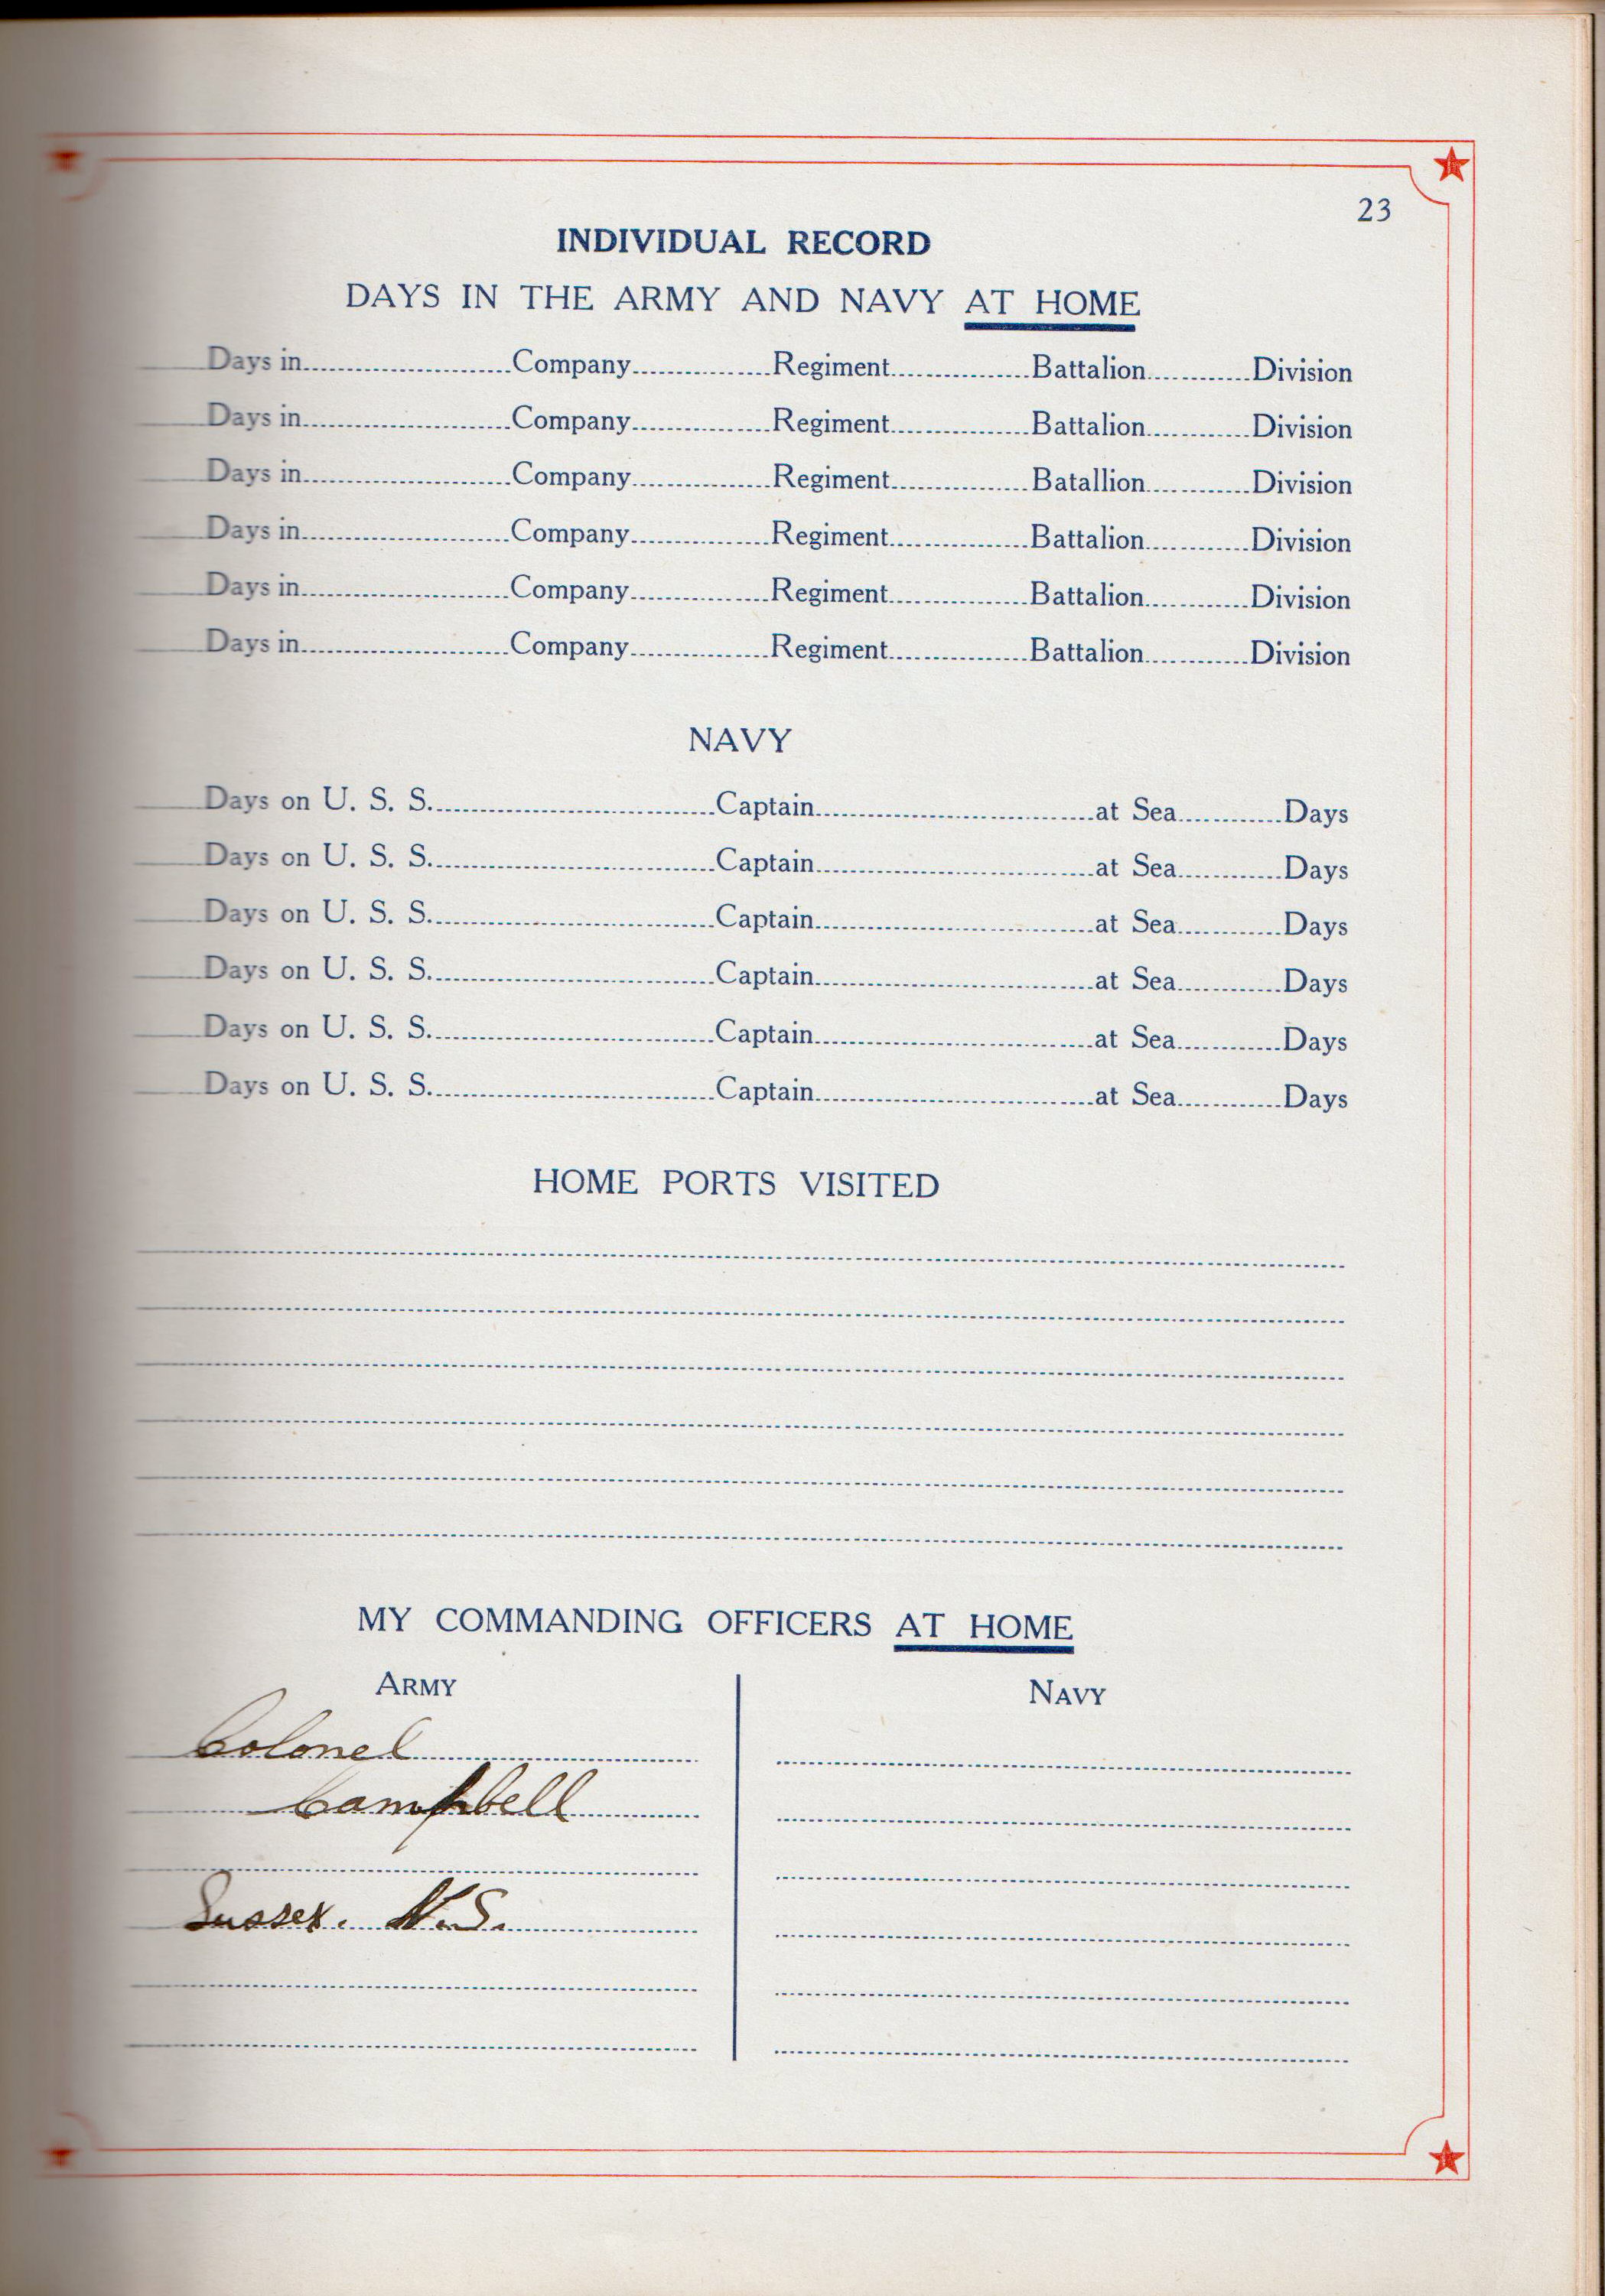 23
INDIVIDUAL RECORD
DAYS IN THE ARMY AND NAVY AT HOME
Days in Company Regiment Battalion Division
Days in Company Regiment Battalion Division
Days in Company Regiment Batallion Division
Days in Company Regiment Battalion Division
Days in Company Regiment Battalion Division
Days in Company Regiment Battalion Division
NAVY
Days on U. S. S. Captain at Sea Days
Days on U. S. S. Captain at Sea Days
Days on U. S. S. Captain at Sea Days
Days on U. S. S. Captain at Sea Days
Days on U. S. S. Captain at Sea Days
Days on U. S. S. Captain at Sea Days
HOME PORTS VISITED
MY COMMANDING OFFICERS AT HOME
ARMY NAVY
Colonel
Campbell
Sussex. N.S.